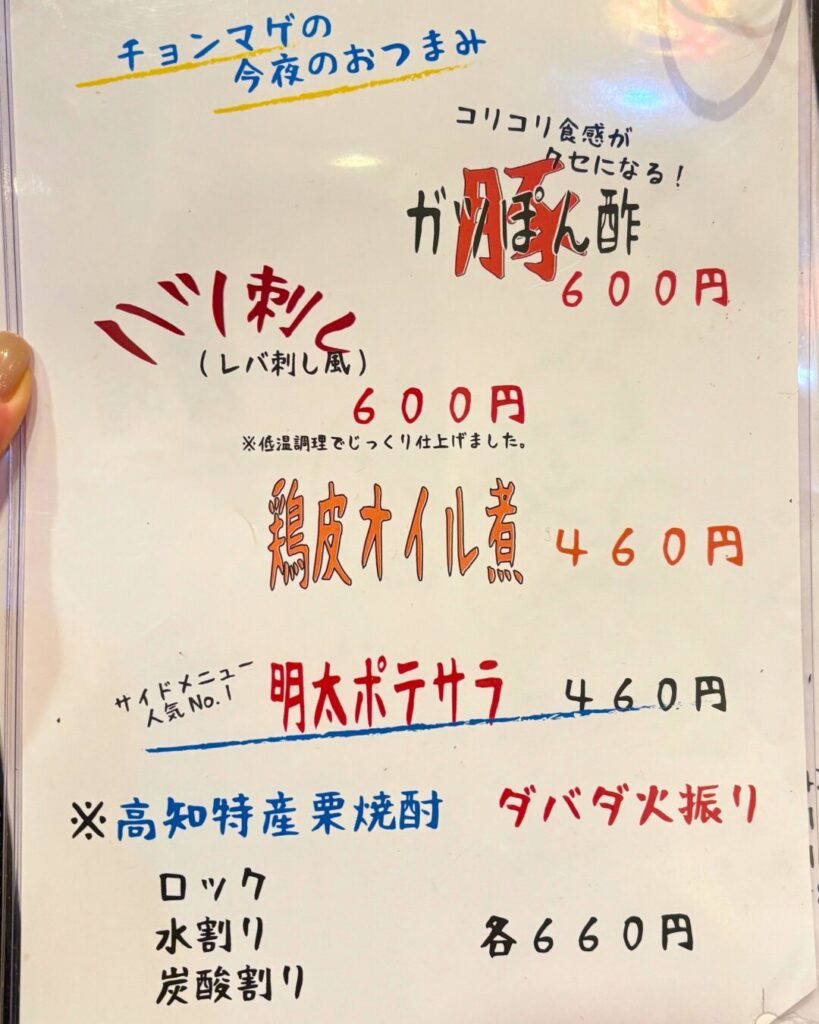 チョンマゲの
今夜のおつまみ
コリコリ食感が
クセになる！
豚
ガツぽん酢
６００円
ハツ刺し
(レバ刺し風)
６００円
※低温調理でじっくり仕上げました。
鶏皮オイル煮 ４６０円
サイドメニュー
人気No.1
明太ポテサラ ４６０円
※高知特産栗焼酎 ダバダ火振り
ロック
水割り 各６６０円
炭酸割り